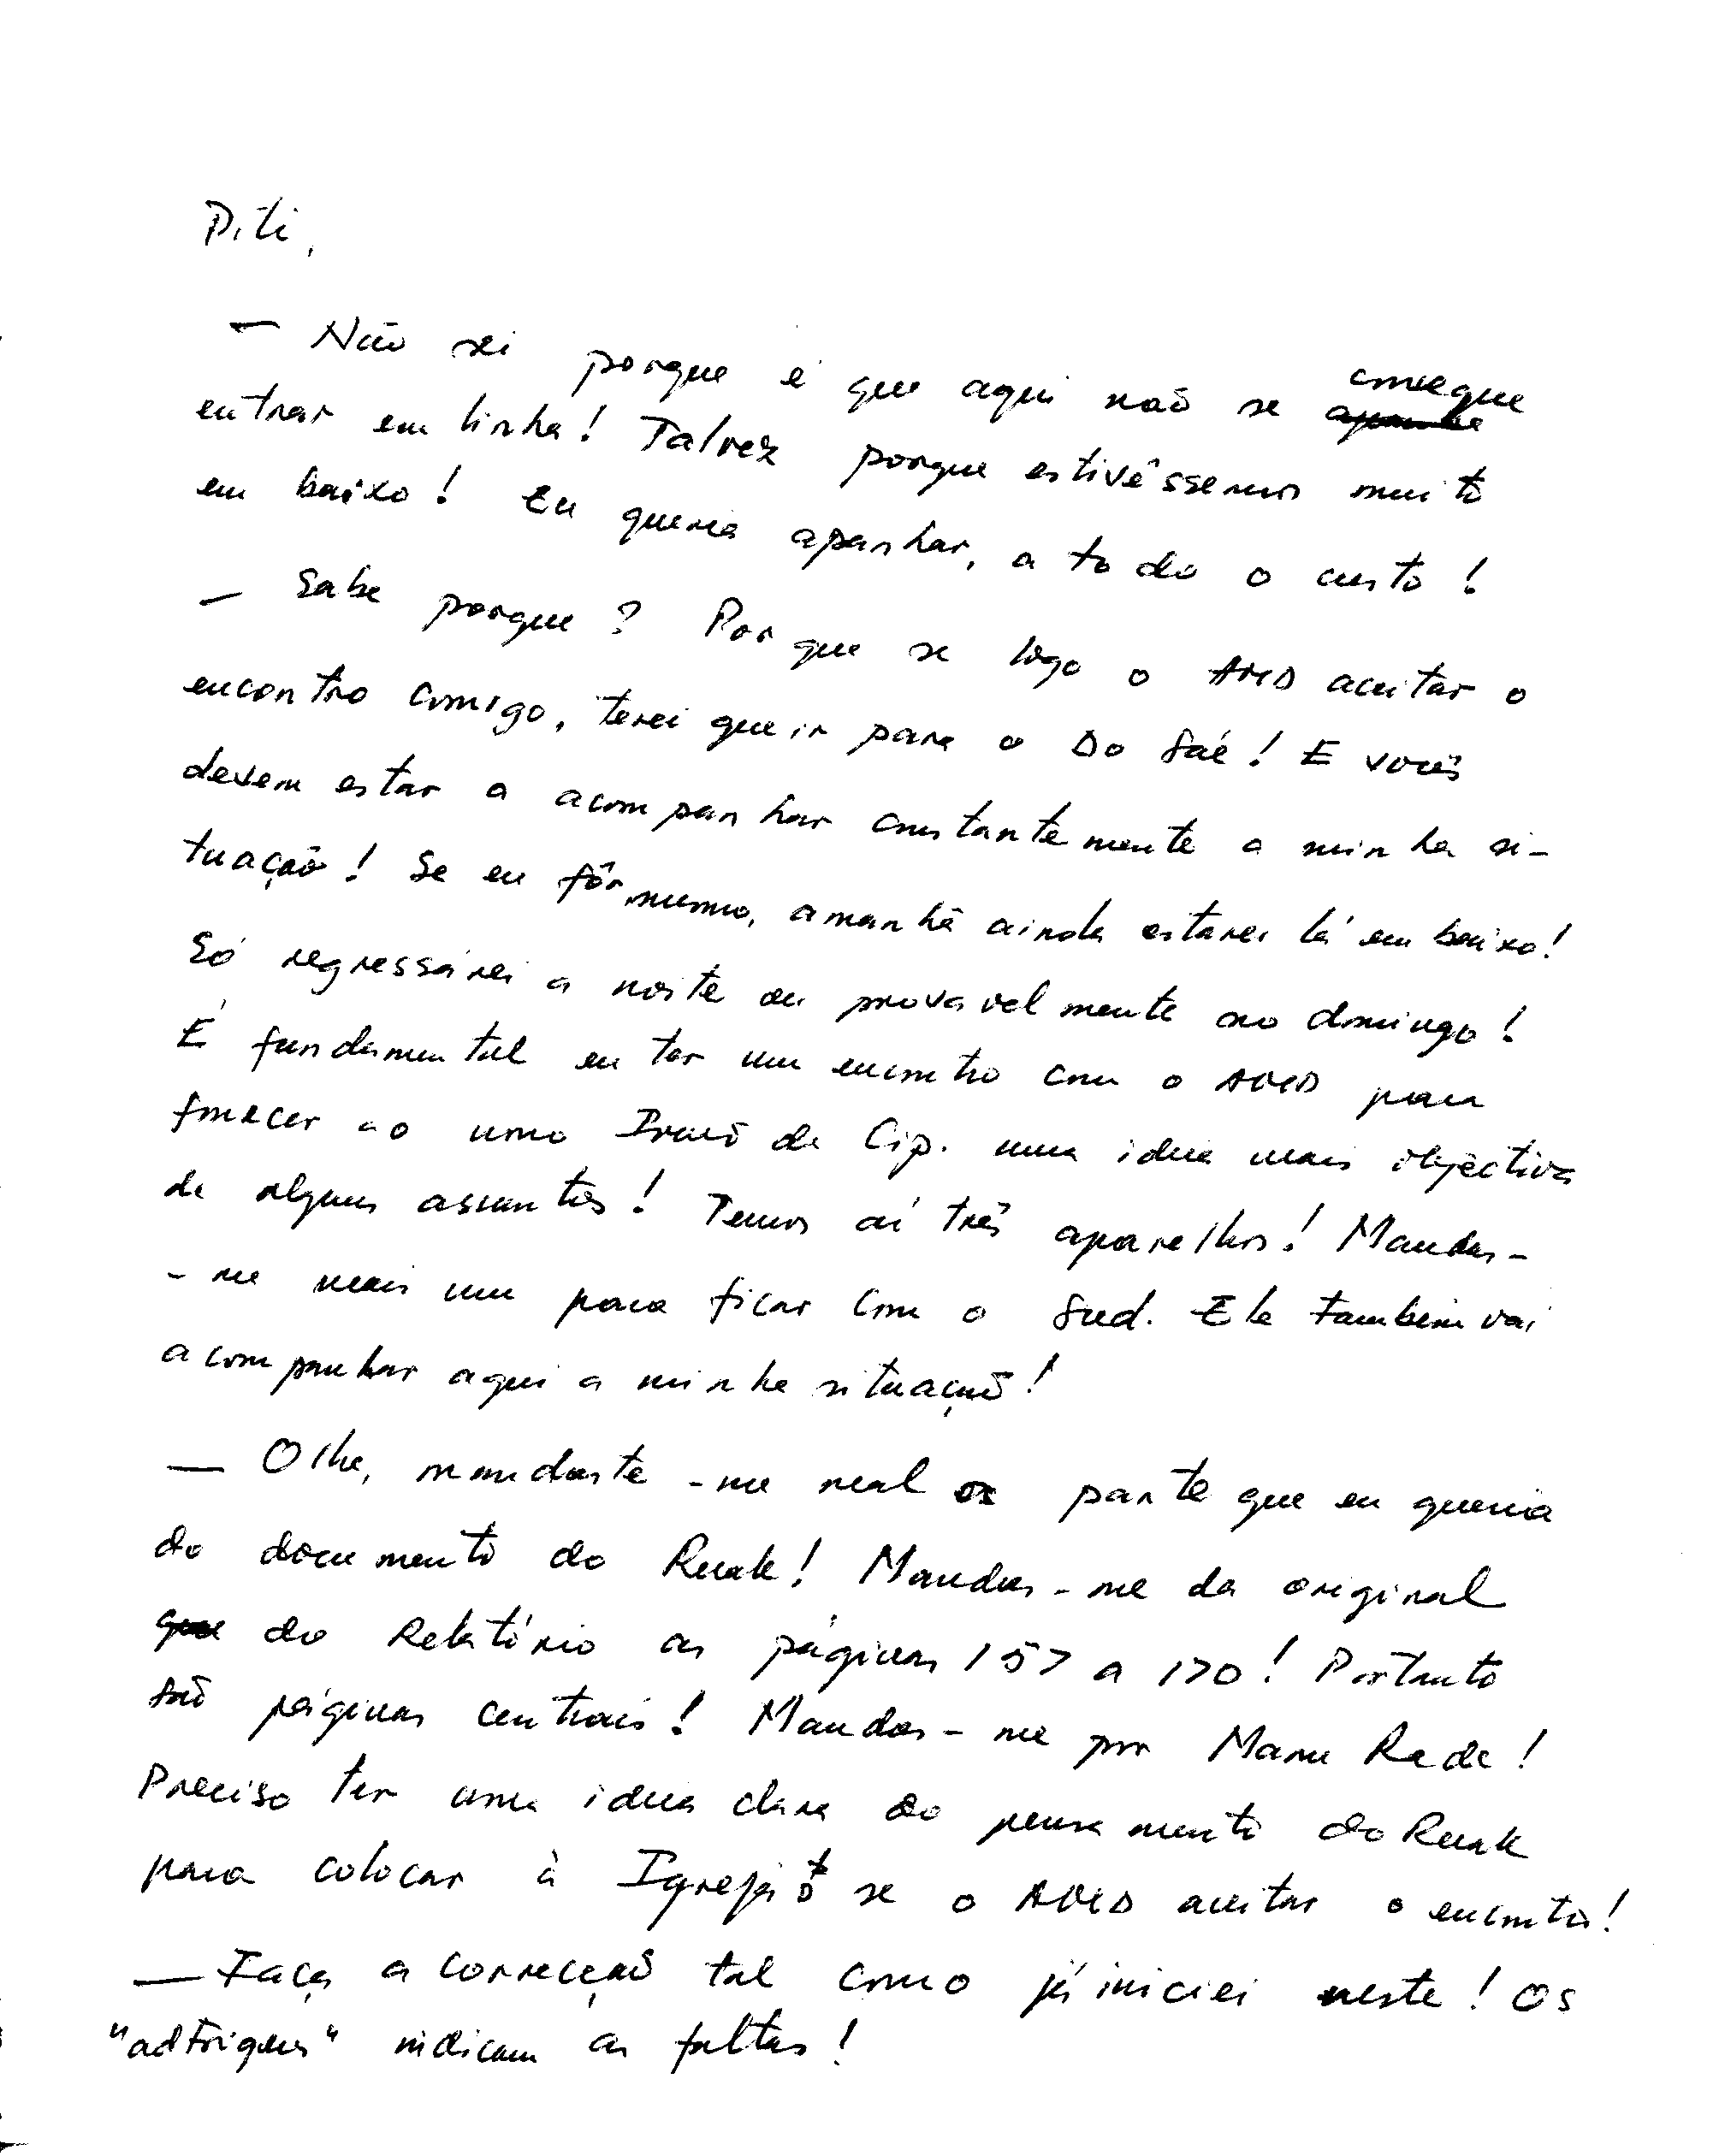 Piti,
— Não sei porque é que aqui não se consegue
entrar em linha! Talvez porque estivéssemos muito
em baixo! Eu queria apanhar, a todo o custo!
— Sabe porque? Porque se logo o AMD aceitar o
encontro comigo, terei que ir para o Do Saé! E vocês
devem estar a acompanhar constantemente a minha si-
tuação! Se eu fôr mesmo, amanhã ainda estarei lá em baixo!
Só regressarei a noite ou provavelmente no domingo!
É fundamental eu ter um encontro com o AMD para
fornecer ao uma Irmão de Cip. uma ideia mais objectiva
de alguns assuntos! Temos aí três aparelhos! Mandas-
-me mais um para ficar com o Sud. Ele também vai
acompanhar aqui a minha situação!
— Olhe, mandaste-me mal a parte que eu queria
do documento do Ruak! Mandas-me da original
do Relatório as páginas 157 a 170! Portanto
são páginas centrais! Mandas-me por Manu Rade!
Preciso ter uma ideia clara do pensamento do Ruak
para colocar à Igreja se o AMD aceitar o encontro!
— Faça a correcção tal como já iniciei neste! Os
"adtrigues" indicam as faltas!